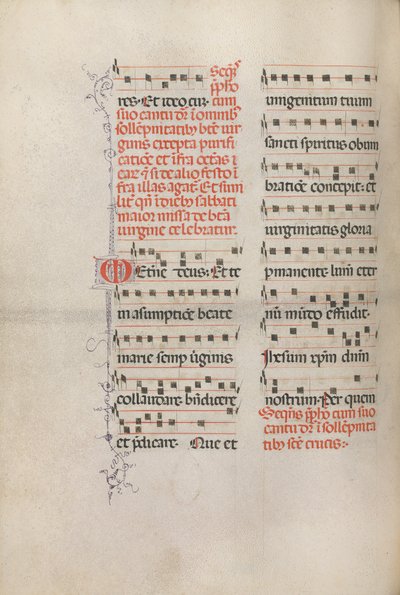 Seqͥs
p̄fͦo
res. Et ideo cū cum
suo cantu dr̄ ĩ om̃ibꝰ
sollẽpnitatibꝫ bt̃e vir
ginis excepta purifi
catiõe et ĩfra octãs ĩ
si de alio festo ĩ
fra illas agat᷑ Et simi
lit᷑ qñ ĩ dieb⁊ sabbati
maior missa de bt̃a
virgine celebratur.
Et me tecus: Et te
in asumptiõe beate
marie semp v̓ginis
collaudare. bñdicere
et p̄dicare. Que et
unigenitum tuum
sancti spiritus obum
bratiõe concepit: et
virginitatis gloria
p̱manente lumẽ eter
nũ mũdo effudit
Jhesum xp̄m dñm
nostrum. Per quem
Seqͥns p̄fͦo cum suo
cantu dr̄ ĩ sollẽpnita
tibꝫ sc̃e crucis:-